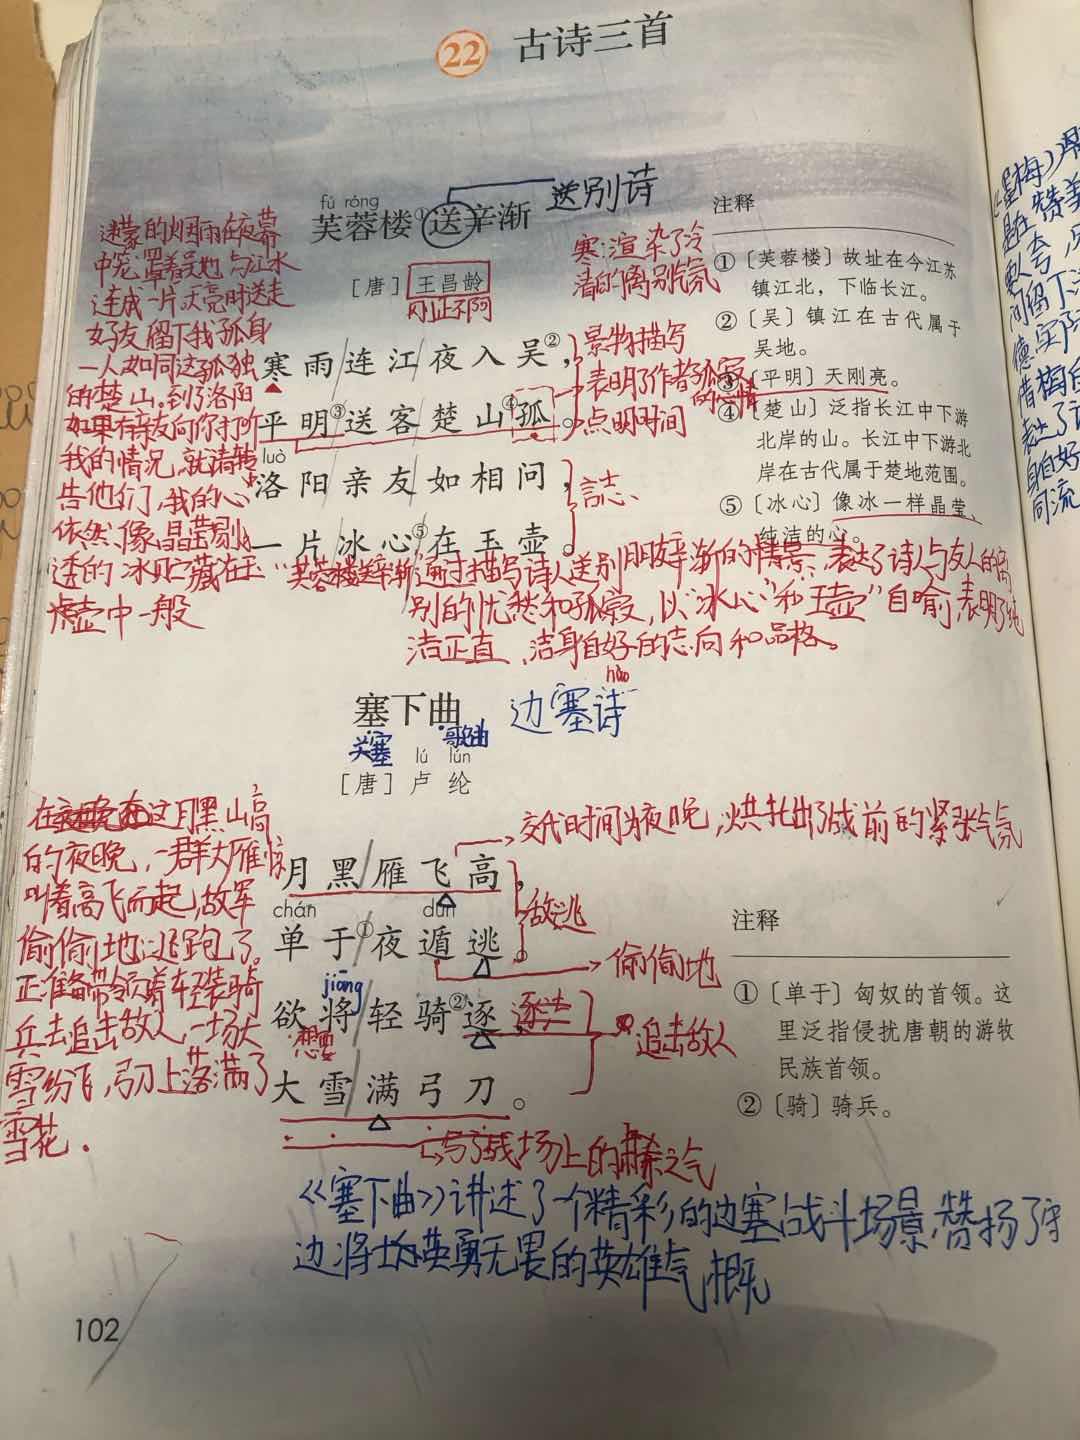 22 古诗三首
fú róng
芙蓉楼①送辛渐
送别诗
[唐]王昌龄
刚正不阿
寒:渲染了冷
清的离别气氛
寒雨连江夜入吴②,
平明③送客楚山④孤。
luò
洛阳亲友如相问,
一片冰心⑤在玉壶。
景物描写
表明了作者孤寂
的心情
点明时间
言志
迷蒙的烟雨在夜幕
中笼罩着吴地与江水
连成一片天亮时送走
好友留下我孤身
一人如同这孤独
的楚山。到了洛阳
如果有亲友向你打听
我的情况,就请转
告他们,我的心
依然像晶莹剔
透的冰贮藏在玉
壶中一般
注释
①〔芙蓉楼〕故址在今江苏
镇江北,下临长江。
②〔吴〕镇江在古代属于
吴地。
③〔平明〕天刚亮。
④〔楚山〕泛指长江中下游
北岸的山。长江中下游北
岸在古代属于楚地范围。
⑤〔冰心〕像冰一样晶莹、
纯洁的心。
“芙蓉楼送辛渐”通过描写诗人送别朋友辛渐的情景,表达了诗人与友人的离
别的忧愁和孤寂,以“冰心”和“玉壶”自喻,表明了纯
洁正直、洁身自好的志向和品格。
hào
塞下曲
边塞诗
关塞
歌曲
lú lún
[唐]卢纶
月黑雁飞高,
chán dùn
单于①夜遁逃。
jiāng
欲将轻骑②逐,
大雪满弓刀。
想要
交代时间为夜晚,烘托出了战前的紧张气氛
敌逃
偷偷地
追击敌人
写了战场上的肃杀之气
在这月黑山高
的夜晚,一群大雁惊
叫着高飞而起,敌军
偷偷地逃跑了。
正准备带领着轻装骑
兵去追击敌人一场大
雪纷飞,弓刀上落满了
雪花.
注释
①〔单于〕匈奴的首领。这
里泛指侵扰唐朝的游牧
民族首领。
②〔骑〕骑兵。
《塞下曲》讲述了一个精彩的边塞战斗场景,赞扬了守
边将士英勇无畏的英雄气概
102